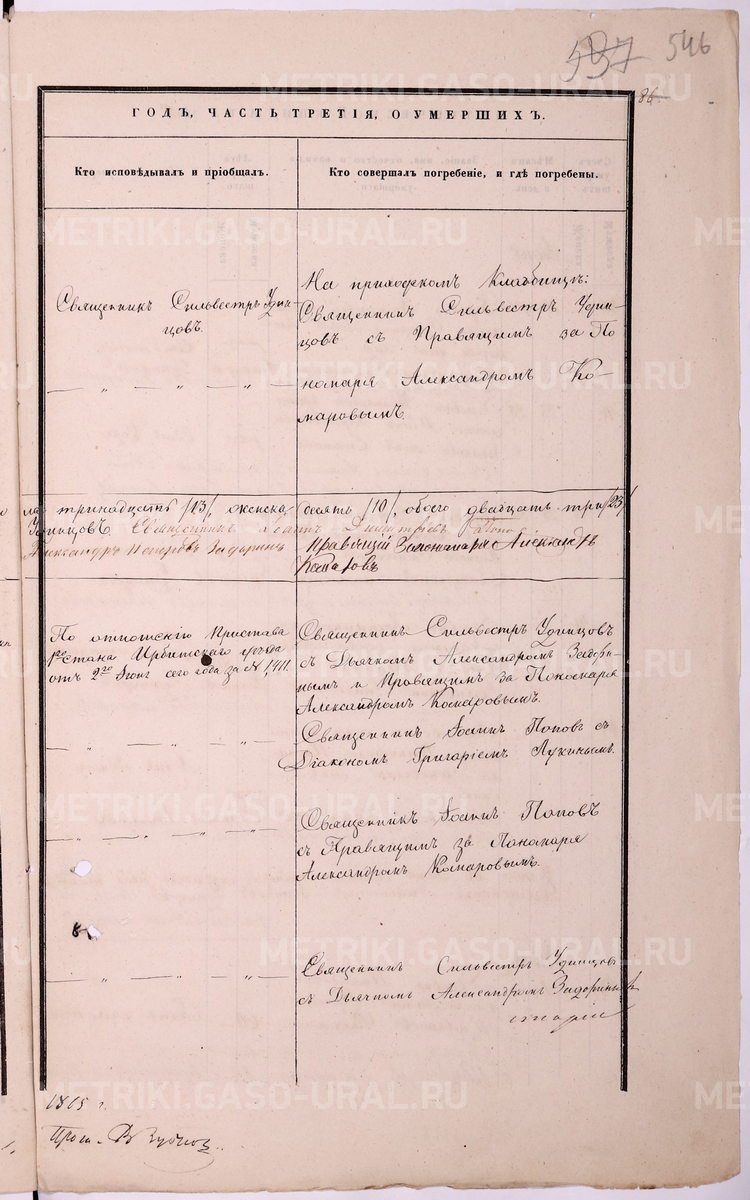 537 546
86.
ГОДЪ, ЧАСТЬ ТРЕТІЯ, О УМЕРШИХЪ.
Кто исповѣдывалъ и пріобщалъ.
Кто совершалъ погребеніе, и гдѣ погребены.
Священникъ Сильвестръ Удин-
цовъ.
На приходскомъ кладбищѣ:
Священникъ Сильвестръ Удин-
цовъ съ Правящимъ за По
номаря Александромъ Ко-
маровымъ
— „ — „ — „ —
тринадцать /13/, женска
десять /10/, обоего двадцать три /23/
Удинцовъ Священникъ Іоаннъ Попов
Александръ Задоринъ
Правящій за пономаря Александръ
Комаровъ
По отношенію Пристава
1го стана Ирбитскаго уѣзда
отъ 2го Іюня сего года за № 1411.
Священникъ Сильвестръ Удинцовъ
съ Дьячкомъ Александромъ Задори-
нымъ и Правящимъ за Пономаря
Александромъ Комаровымъ.
— „ — „ — „ —
Священникъ Іоаннъ Поповъ съ
Діакономъ Григоріемъ Лукинымъ.
— „ — „ — „ —
Священникъ Іоаннъ Поповъ
съ Правящимъ за Пономаря
Александромъ Комаровымъ.
— „ — „ — „ —
Священникъ Сильвестръ Удинцовъ
съ Дьячкомъ Александромъ Задоринымъ
METRIKI.GASO-URAL.RU